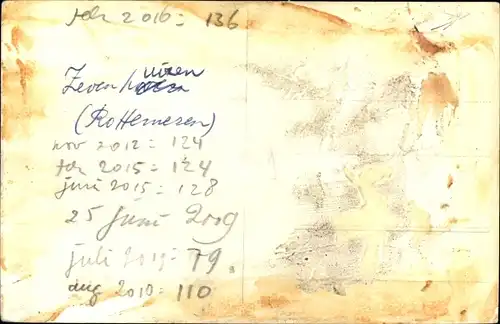 feb 2016 = 136
Zevenhuizen
(Rottemeren)
nov 2012 = 124
feb 2015 = 124
juni 2015 = 128
25 Juni 2009
juli 2019 = 79.
aug 2010 = 110